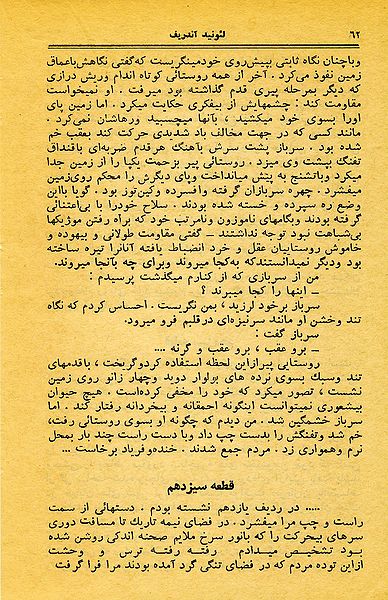 ۶۲ لئونید آندریف
وباچنان نگاه ثابتی بپیش‌روی خودمینگریست که‌گفتی نگاهش‌باعماق
زمین نفوذ می‌کرد . آخر از همه روستائی کوتاه اندام وریش درازی
که دیگر بمرحله پیری قدم گذاشته بود میرفت . او نمیخواست
مقاومت کند : چشمهایش از بیفکری حکایت میکرد . اما زمین پای
اورا بسوی خود میکشید ، بآنها میچسبید ورهاشان نمی‌کرد .
مانند کسی که در جهت مخالف باد شدیدی حرکت کند بعقب خم
شده بود . سرباز پشت سرش باآهنگ هرقدم ضربه‌ای باقنداق
تفنگ بپشت وی میزد . روستائی پیر بزحمت یکپا را از زمین جدا
میکرد وباتشنج به پیش میانداخت وپای دیگرش را محکم روی‌زمین
میفشرد . چهره سربازان گرفته وافسرده وکین‌توز بود . گویا بااین
وضع ره سپرده و خسته شده بودند . سلاح خودرا با بی‌اعتنائی
گرفته بودند وبگامهای ناموزون ونامرتب خود که براه رفتن موژیکها
بی‌شباهت نبود توجه نداشتند ـ گفتی مقاومت طولانی و بیهوده و
خاموش روستاییان عقل و خرد انضباط یافته آنانرا تیره ساخته
بود ودیگر نمیدانستندکه به‌کجا میروند وبرای چه بآنجا میروند.
من از سربازی که از کنارم میگذشت پرسیدم :
ـ اینها را کجا میبرند ؟
سرباز برخود لرزید ، بمن نگریست . احساس کردم که نگاه
تند وخشن او مانند سرنیزه‌ای درقلبم فرو میرود.
سرباز گفت :
ـ برو عقب ، برو عقب و گرنه ....
روستایی پیرازاین لحظه استفاده کردوگریخت ، باقدمهای
تند وسبك بسوی نرده های بولوار دوید وچهار زانو روی زمین
نشست ، تصور میکرد که خود را مخفی کرده‌است . هیچ حیوان
بیشعوری نمیتوانست اینگونه احمقانه و بیخردانه رفتار کند . اما
سرباز خشمگین شد . من دیدم که چگونه او بسوی روستائی رفت،
خم شد وتفنگش را بدست چپ داد وبا دست راست چند بار بمحل
نرم وهمواری زد . مردم جمع شدند . خنده‌وفریاد برخاست ...
قطعه سیزدهم
..... در ردیف یازدهم نشسته بودم . دستهائی از سمت
راست و چپ مرا میفشرد . در فضای نیمه تاریك تا مسافت دوری
سرهای بیحرکت را که بانور سرخ ملایم صحنه اندکی روشن شده
بود تشخیص میدادم رفته رفته ترس و وحشت
ازاین توده مردم که در فضای تنگی گرد آمده بودند مرا فرا گرفت